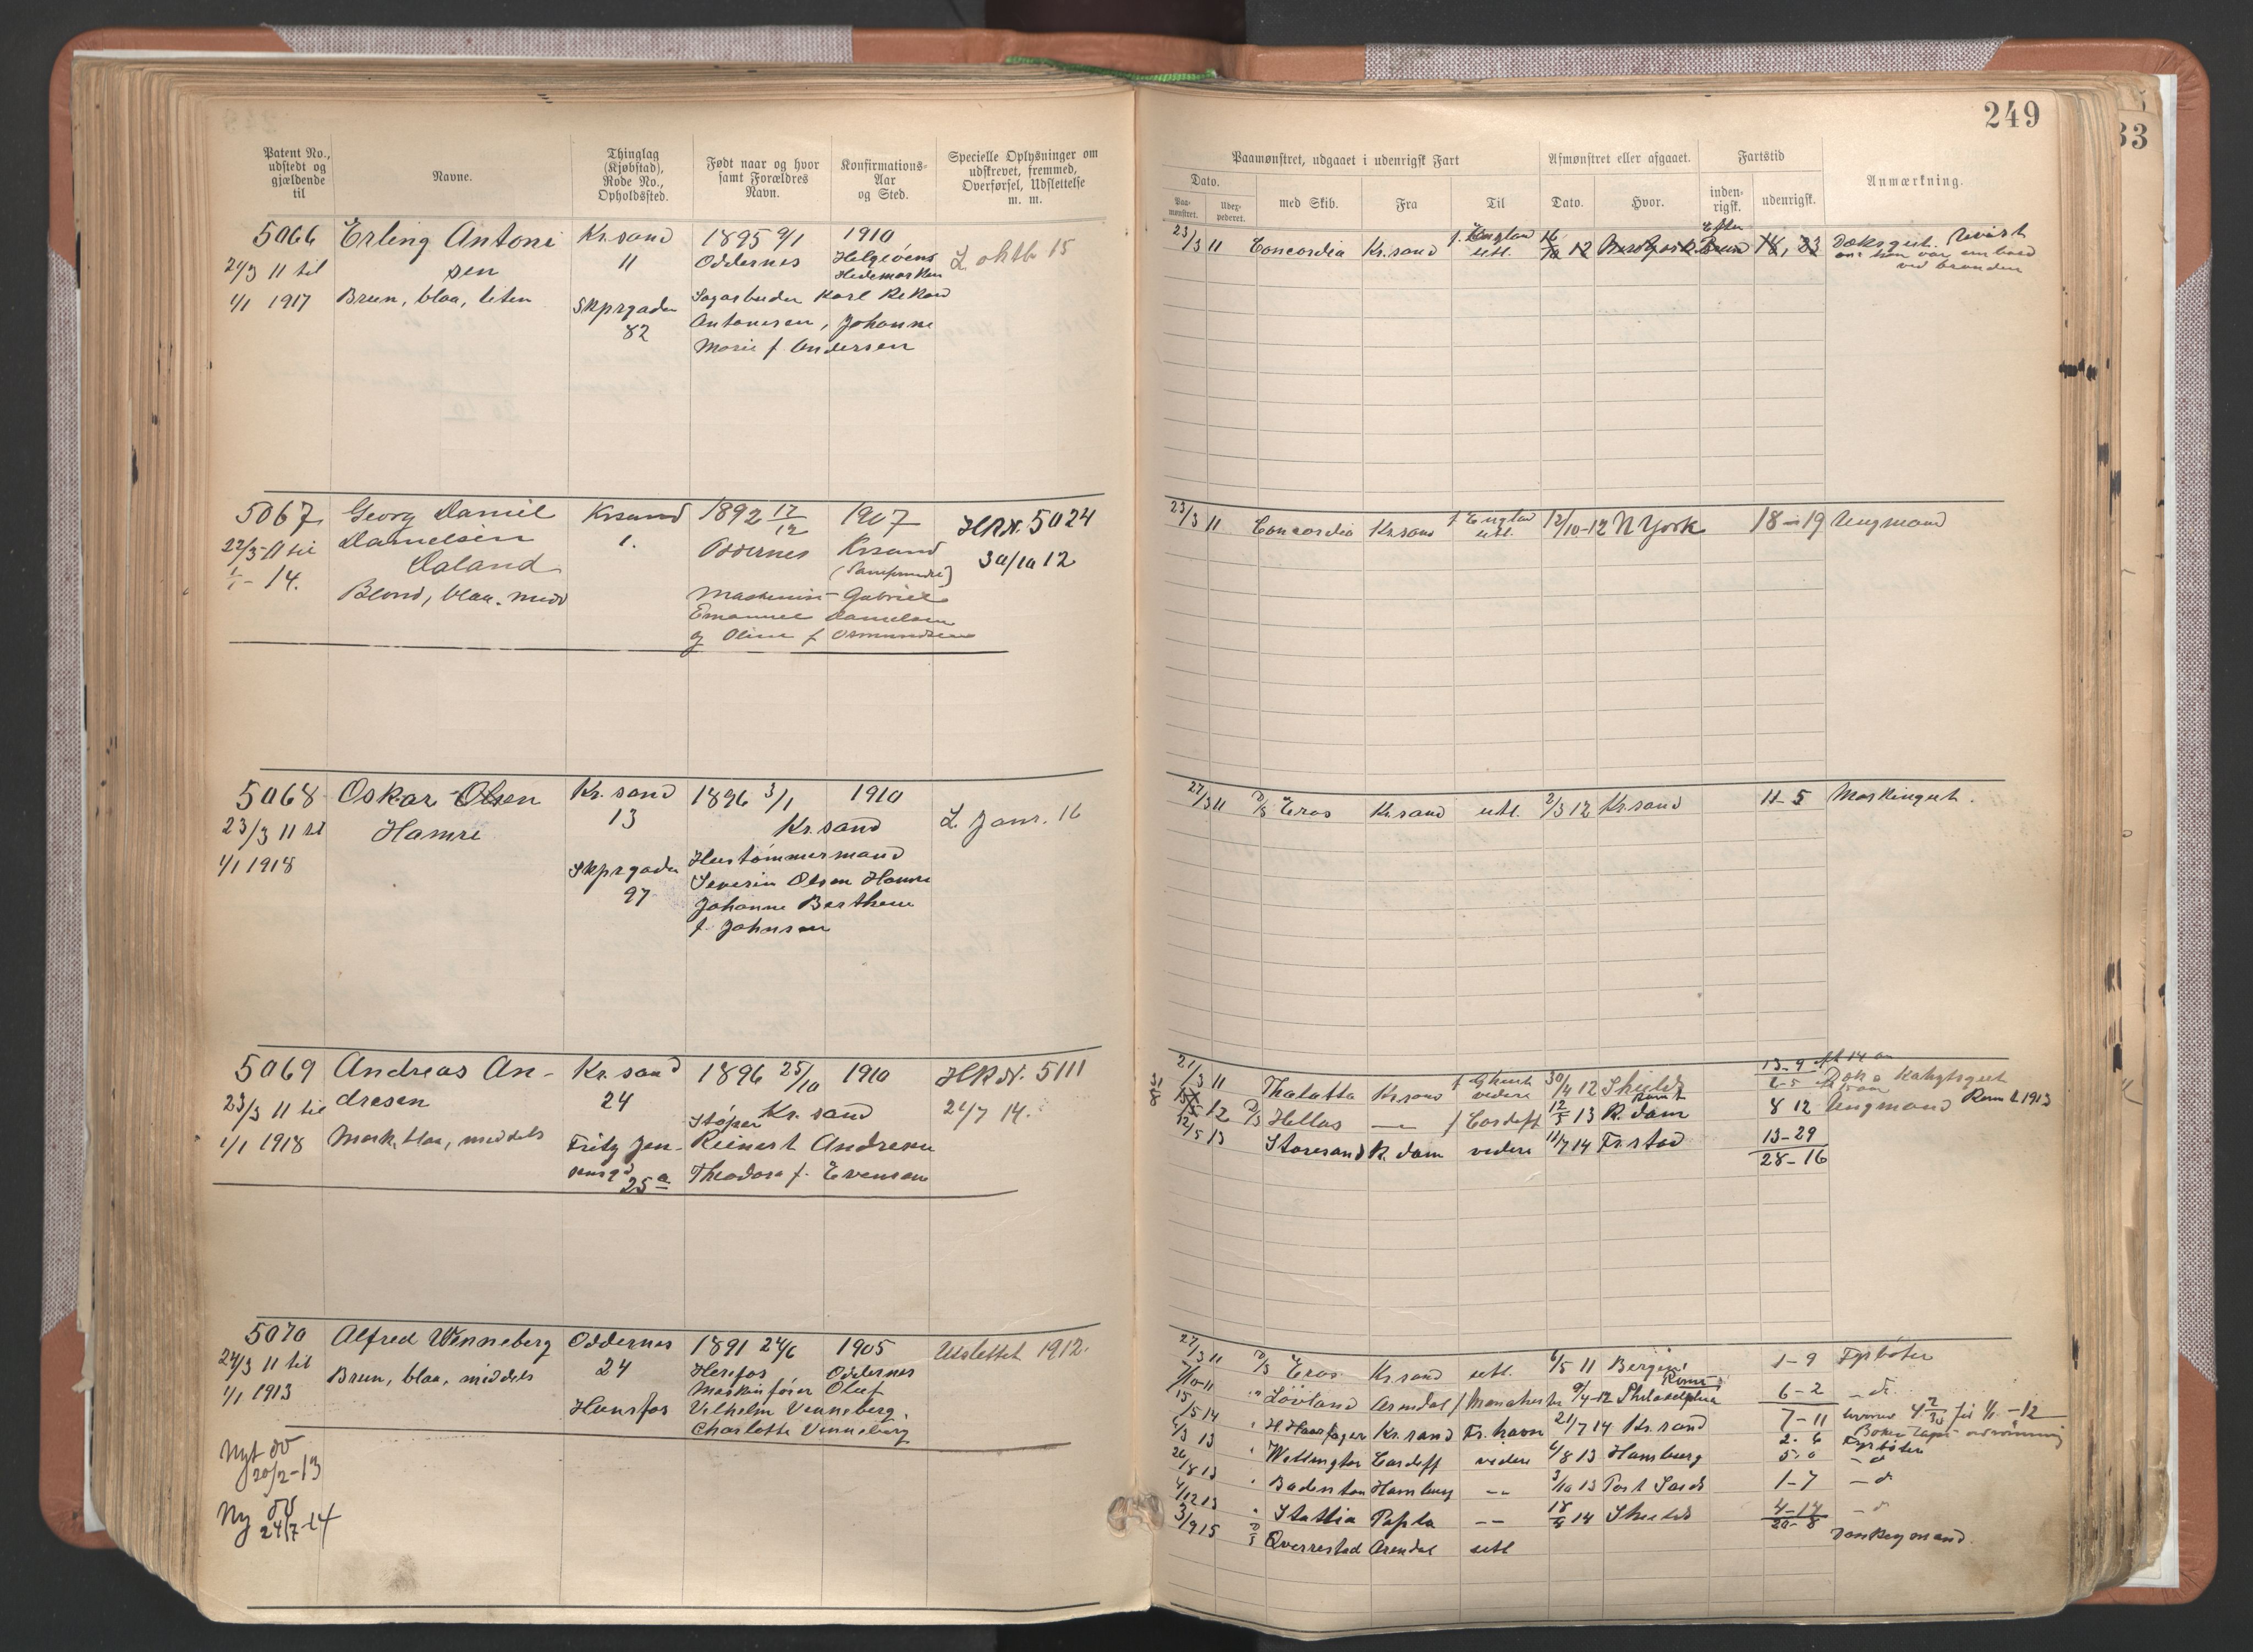 249
33
Patent No., udstedt og gjældende til
Navne.
Thinglag (Kjøbstad), Rode No., Opholdssted.
Født naar og hvor samt Forældres Navn.
Konfirmations-Aar og Sted.
Specielle Oplysninger om udskrevet, fremmed, Overførsel, Udslettelse m. m.
Paamønstret, udgaaet i udenrigsk Fart
Afmønstret eller afgaaet.
Fartstid
Anmærkning.
Dato.
Paa-mønstret.
Udex-pederet.
med Skib.
Fra
Til
Dato.
Hvor.
inden-rigsk.
udenrigsk.
5066 Erling Antoni Kr.sand 1895 9/1 1910
24/3 11 til sen 11 Oddernes Helgeøens Hedemarken L oktb 15
1/1 1917 Brun, blaa, liten Skprgaden Sagarbeider Karl Rikard
82 Antonisen, Johanne
Marie f. Andersen
23/3 11 Concordia Kr.sand f. England utl. 16/10 12 18, 23 Dæksgut.
ombord
ved branden
5067 Georg Daniel Krsand 1892 17/12 1907 HRN. 5024
22/3 11 til Danielsen 1. Oddernes Krsand 30/10 12
1/1 - 14. Daland
Blond, blaa. midd Maskinist Gabriel
Emanuel Danielsen
og Oline f Osmundsen
23/3 11 Concordia Kr.sand f England utl. 12/10-12 N York 18-19 Ungmand
5068 Oskar Olsen Kr. sand 1896 3/1 1910
23/3 11 til Hamre 13 Kr. sand L Janr. 16
1/1 1918 Skprgaden Hustømmermand
97 Severin Olsen Hamre
Johanne Berthine
f. Johnsen
27/3 11 Eros Kr.sand utl. 2/3 12 Kr.sand 11-5 Maskingut.
5069 Andreas An- Kr. sand 1896 25/10 1910 HRN. 5111
23/3 11 til dresen 24 Kr. sand 24/7 14.
1/1 1918 Mørk, blaa, middels Fritz Jen- Støper Reinert Andresen
sensgd 25a Theodora f. Evensen
21/3 11 Thalatta Kr.sand f Ghent videre 30/4 12 Shields 13-9
12 Hellas — f Cardiff 12/5 13 R. dam 8 12 Ungmand Rømt 1913
12/5 13 Storesand R. dam videre 11/7 14 Fr.stad 13-29
28-16
5070 Alfred Wenneberg Oddernes 1891 24/6 1905 Utslettet 1912.
24/3 11 til Brun, blaa, middels 24 Herefos Oddernes
1/1 1913 Maskinfører Oluf
Hunsfos Vilhelm Venneberg.
Charlotte Venneberg
Nyt do 20/2-13
Ny do 24/7-14
27/3 11 Eros Kr. sand utl. 6/5 11 Bergen 1-9 Fyrbøter
7/10-11 Løvland Arendal f Manchester 9/4-12 Philadelphia Rømt 6-2 - d.
15/5 14 H. Haarfager Kr. sand Fr. havn 21/7 14 Kr. sand 7-11
6/3 13 Wellington Cardiff videre 6/8 13 Hamburg 2-6 Fyrbøter
26/8 13 Hamburg -- 3/10 13 Port Said 1-7 - d
4/12 13 -- 18/4 14 Shields 4-14 - d
20-8
3/9 15 Qverrestad Arendal utl Donkeymand.